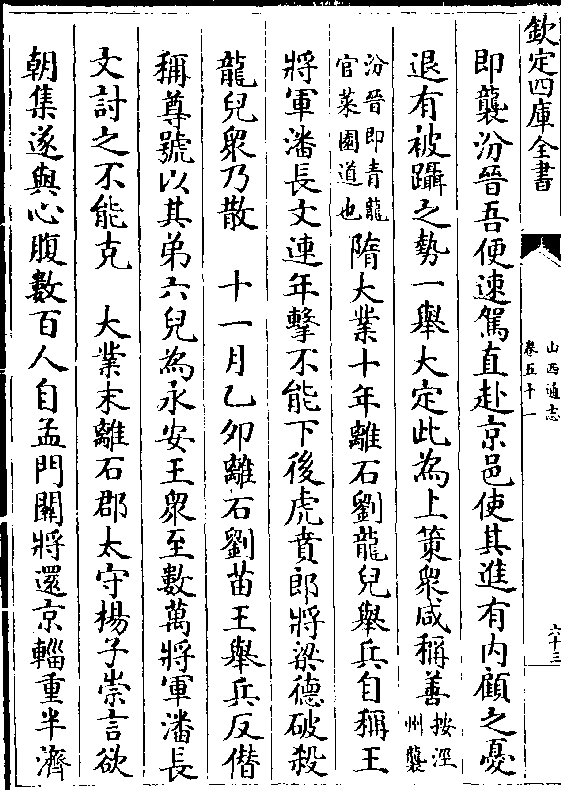 欽定四庫全書
山西通志
卷五十一
六十三
即襲汾晉吾便速駕直赴京邑使其進有内顧之憂
退有被躡之勢一舉大定此為上策衆咸稱善按涇州襲
汾晉即青龍官菜園道也隋大業十年離石劉龍兒舉兵自稱王
將軍潘長文連年擊不能下後虎賁郎將梁德破殺
龍兒衆乃散　十一月乙卯離石劉苗王舉兵反僣
稱尊號以其弟六兒為永安王衆至數萬將軍潘長
文討之不能克　大業末離石郡太守楊子崇言欲
朝集遂與心腹數百人自孟門關將還京輜重半濟